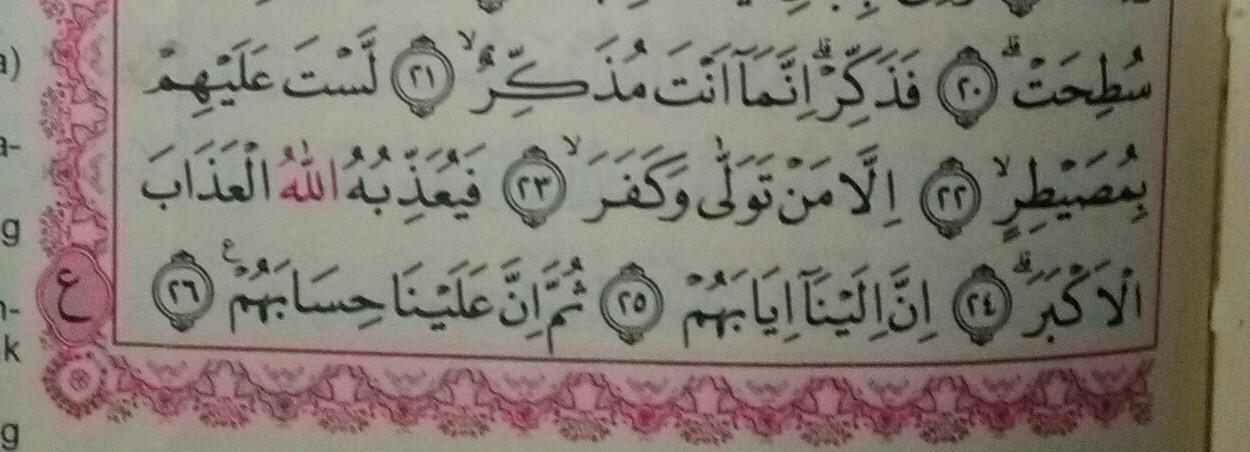 سُطِحَتْۗ ٢٠ فَذَكِّرْۗ اِنَّمَآ اَنْتَ مُذَكِّرٌۙ ٢١ لَّسْتَ عَلَيْهِمْ
بِمُصَيْطِرٍۙ ٢٢ اِلَّا مَنْ تَوَلّٰى وَكَفَرَۙ ٢٣ فَيُعَذِّبُهُ اللّٰهُ الْعَذَابَ
الْاَكْبَرَۗ ٢٤ اِنَّ اِلَيْنَآ اِيَابَهُمْ ٢٥ ثُمَّ اِنَّ عَلَيْنَا حِسَابَهُمْ ࣖ ٢٦
ع
a)
a-
g
n-
k
g